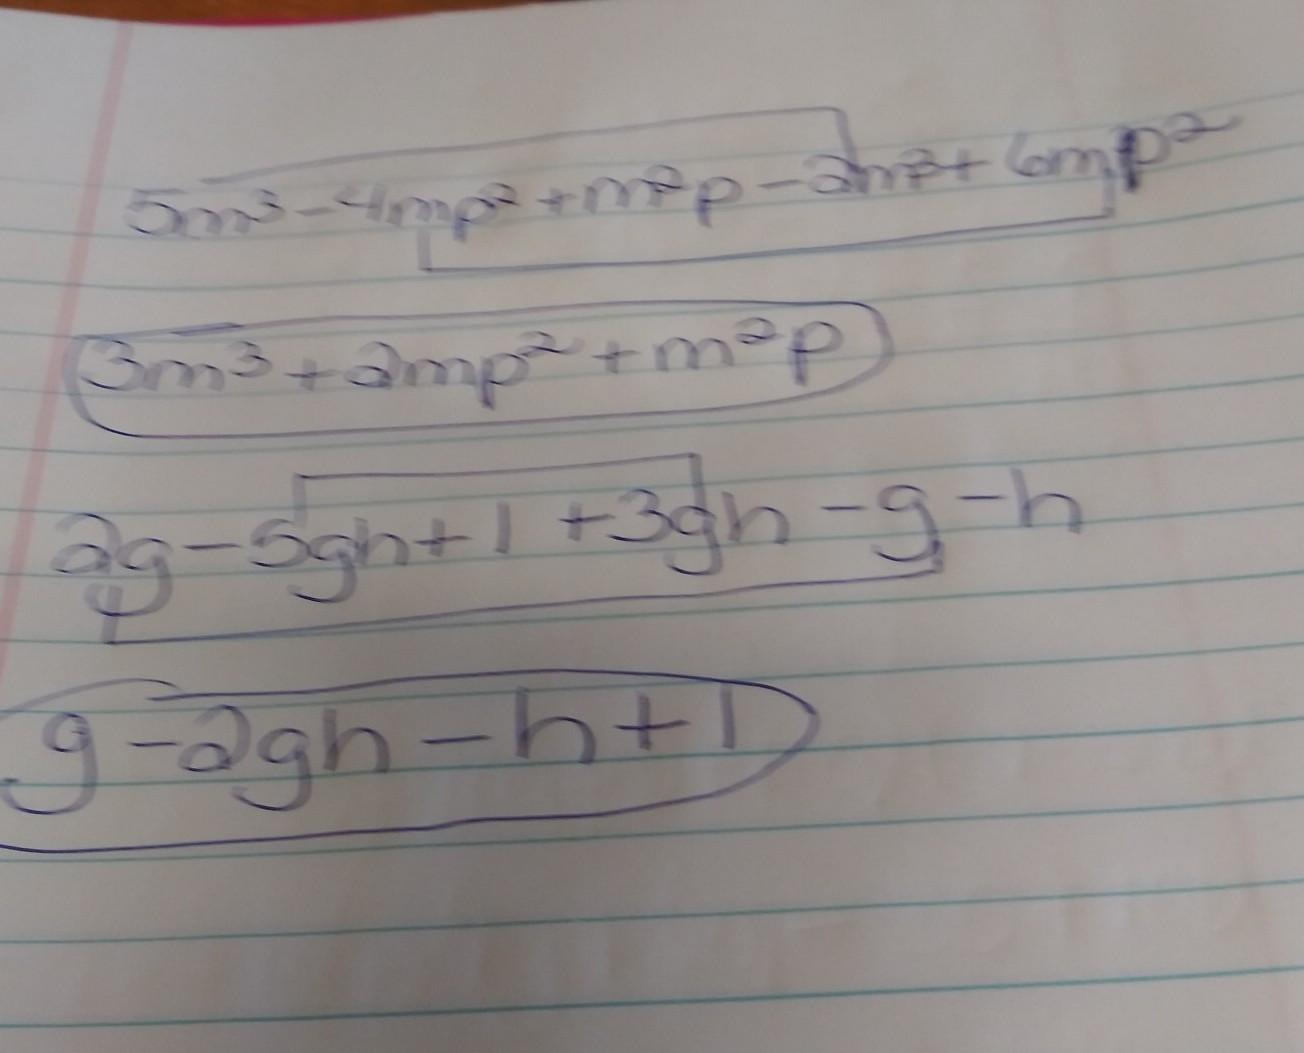 5m³-4mp²+m²p-2m³+6mp²
3m³+2mp²+m²p
2g-5gh+1+3gh-g-h
g-2gh-h+1